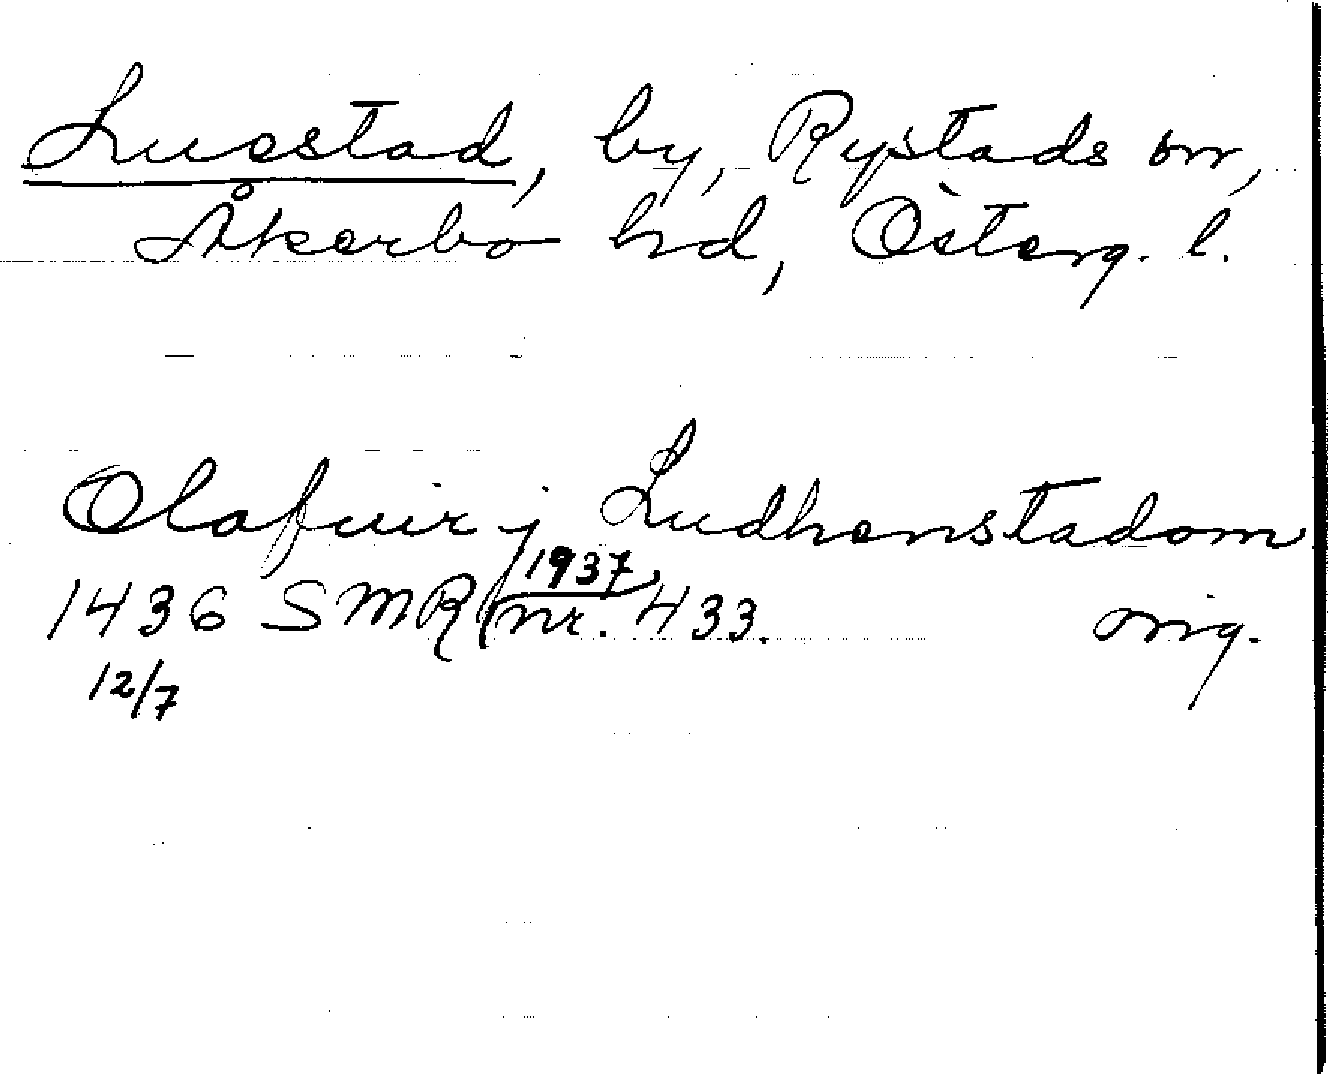 Luestad, by, Rystads sn,
Åkerbo hd, Österg. l.
Olafuir j Ludhenstadom
1436 SMR 1937 nr. 433. orig.
12/7